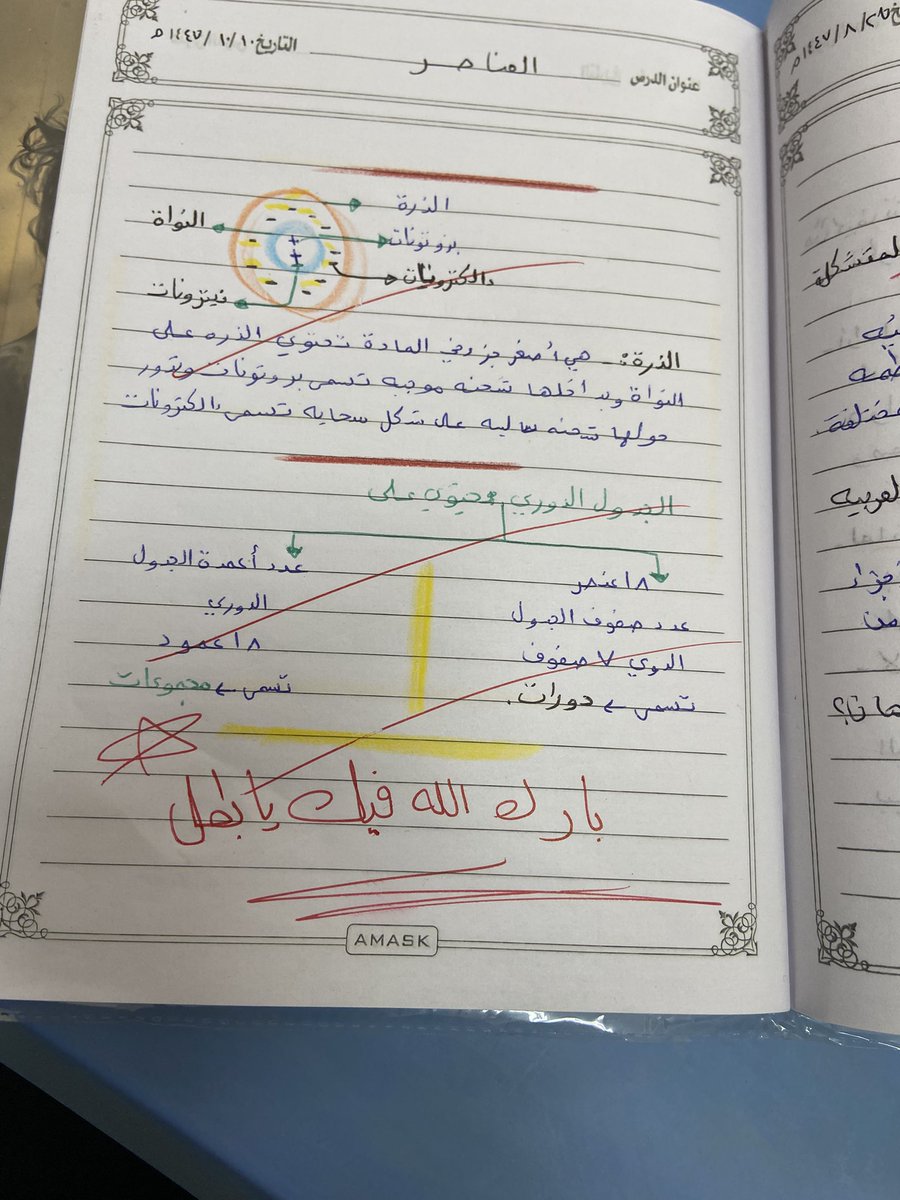 عنوان الدرس العناصر التاريخ ١٠/١٠/١٤٤٧م
الذرة
النواة بروتونات
الكترونات
نيترونات
الذرة:- هي أصغر جزء في المادة تحتوي الذره على
النواة وبداخلها شحنه موجبه تسمى بروتونات وتدور
حولها شحنه سالبه على شكل سحابه تسمى الكترونات
الجدول الدوري يحتوي على
١٨ عنصر
عدد صفوف الجدول
الدوري ٧ صفوف
تسمى دورات.
عدد أعمدة الجدول
الدوري
١٨ عمود
تسمى مجموعات
بارك الله فيك يا بطل
AMASK
١٤٤٧/٨/
يه
العربيه
من